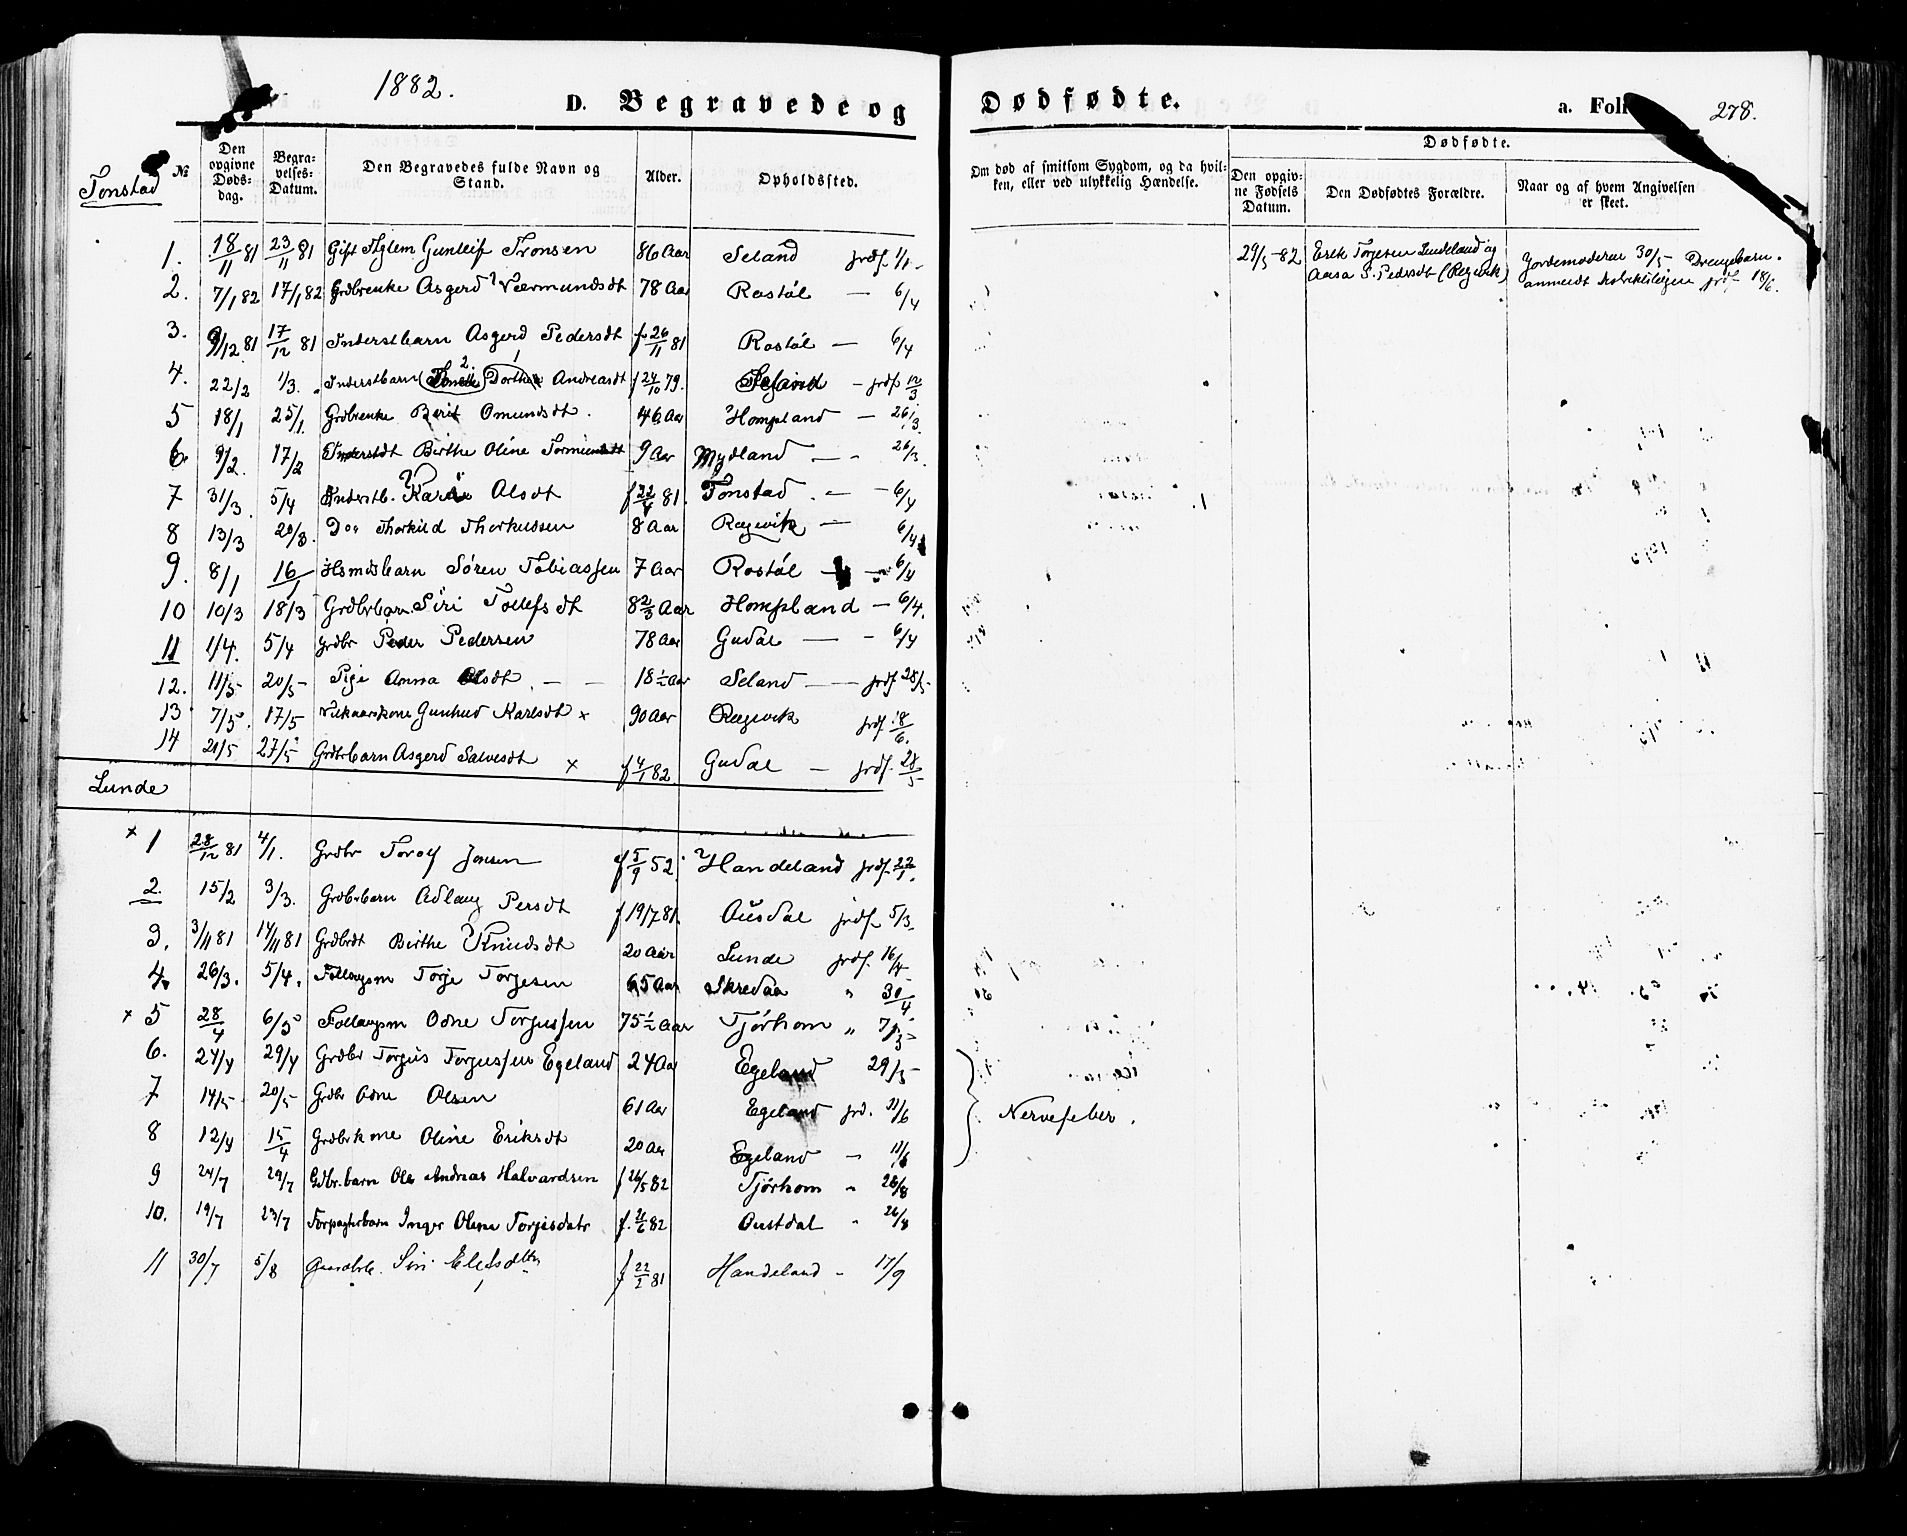 1882.
D. Begravede og
Dødfødte.
a. Foli
278.
Tonstad
№
Den opgivne Døds-dag.
Begra-velses-Datum.
Den Begravedes fulde Navn og Stand.
Alder.
Opholdssted.
Om død af smitsom Sygdom, og da hvil-ken, eller ved ulykkelig Hændelse.
Dødfødte.
Den opgiv-ne Fødsels Datum.
Den Dødfødtes Forældre.
Naar og af hvem Angivelsen er skeet.
1. 18/11 81 23/11 81 Gift Tronsen 86 Aar Seland jrdf. 1/1
29/5-82 Erik Torjesen og
Aasa S. Pedersdt (Regevik)
Jordemoderen 30/5 - Drengebarn.
anmeldt jrdf 18/6.
2. 7/1 82 17/1 82 Grdbrenke Asgerd Værmundsdt 78 Aar Rostøl — 6/4
3. 9/12 81 17/12 81 Inderstbarn Asgerd Pedersdt f 26/11 81 Rostøl — 6/4
4. 22/2 1/3. Inderstbarn Andreasdt f 24/10 79. Seland - jrdf 12/3
5 18/1 25/1. Grdbrenke Berit Omundsdt. 46 Aar Hompland — 26/3
6. 9/2 17/2 Inderstdt Birthe Oline 9 Aar Mydland — 26/3.
7 31/3 5/4 Inderstb. Olsdt f 22/4 81. Tonstad — 6/4
8 13/3 20/3. Do Thorkild 8 Aar Regevik — 6/4
9. 8/1 16/1 Hsmdsbarn Søren Tobiassen 7 Aar Rostøl — 6/4
10 10/3 18/3 Grdbrbarn Siri Tollefsdt 8 2/3 Aar Hompland — 6/4.
11 1/4. 5/4 grdbr Peder Pedersen 78 Aar Gudal — 6/4
12. 11/5 20/5 Pige Anna Olsdt. — 18 1/2 Aar Seland — jrdf 28/5
13 7/5. 17/5 Vilkaarskone Gunhild Karlsdt x 90 Aar Regevik jrdf. 18/6.
14 21/5 27/5 Grdbrbarn Asgerd Salvesdt x f 4/1 82 Gudal — jrdf. 28/5
Lunde
x 1 28/12 81 4/1. Grdbr Torolf Jonsen f 5/9 52. Handeland jrdf. 22/1.
2. 15/2 3/3. Grdbrbarn Adlaug Persdt f 19/7 81. Ausdal jrdf 5/3
3. 3/11 81 14/11 81 Grdbrdt Birthe Knudsdt 20 Aar Lunde jrdf. 16/4
4. 26/3. 5/4. Follaugsm Torje Torjesen 65 Aar Skredaa " 30/4
x 5 28/4 6/5 Follaugsm Odne Torjussen 75 1/2 Aar Tjørhom "
6. 24/4 29/4 Grdbr Torjus Torjussen Egeland 24 Aar Egeland 29/5
7 14/5 20/5 Grdbr Odne Olsen 61 Aar Egeland jrd. 11/6
Nervefeber.
8 12/4 15/4 Grdbrkone Oline Eriksdt 20 Aar Egeland - 11/6
9 24/7 29/7 Gdbr.barn Ole Andreas Halvardsen f 26/5 82 Tjørhom " 26/8
10. 19/7 23/7 Forpagterbarn Inger Olene Torjisdatr f. 21/6 82 Oustdal " 26/8
11 30/7 5/8 Siri f 22/2 81 Handeland - 17/9